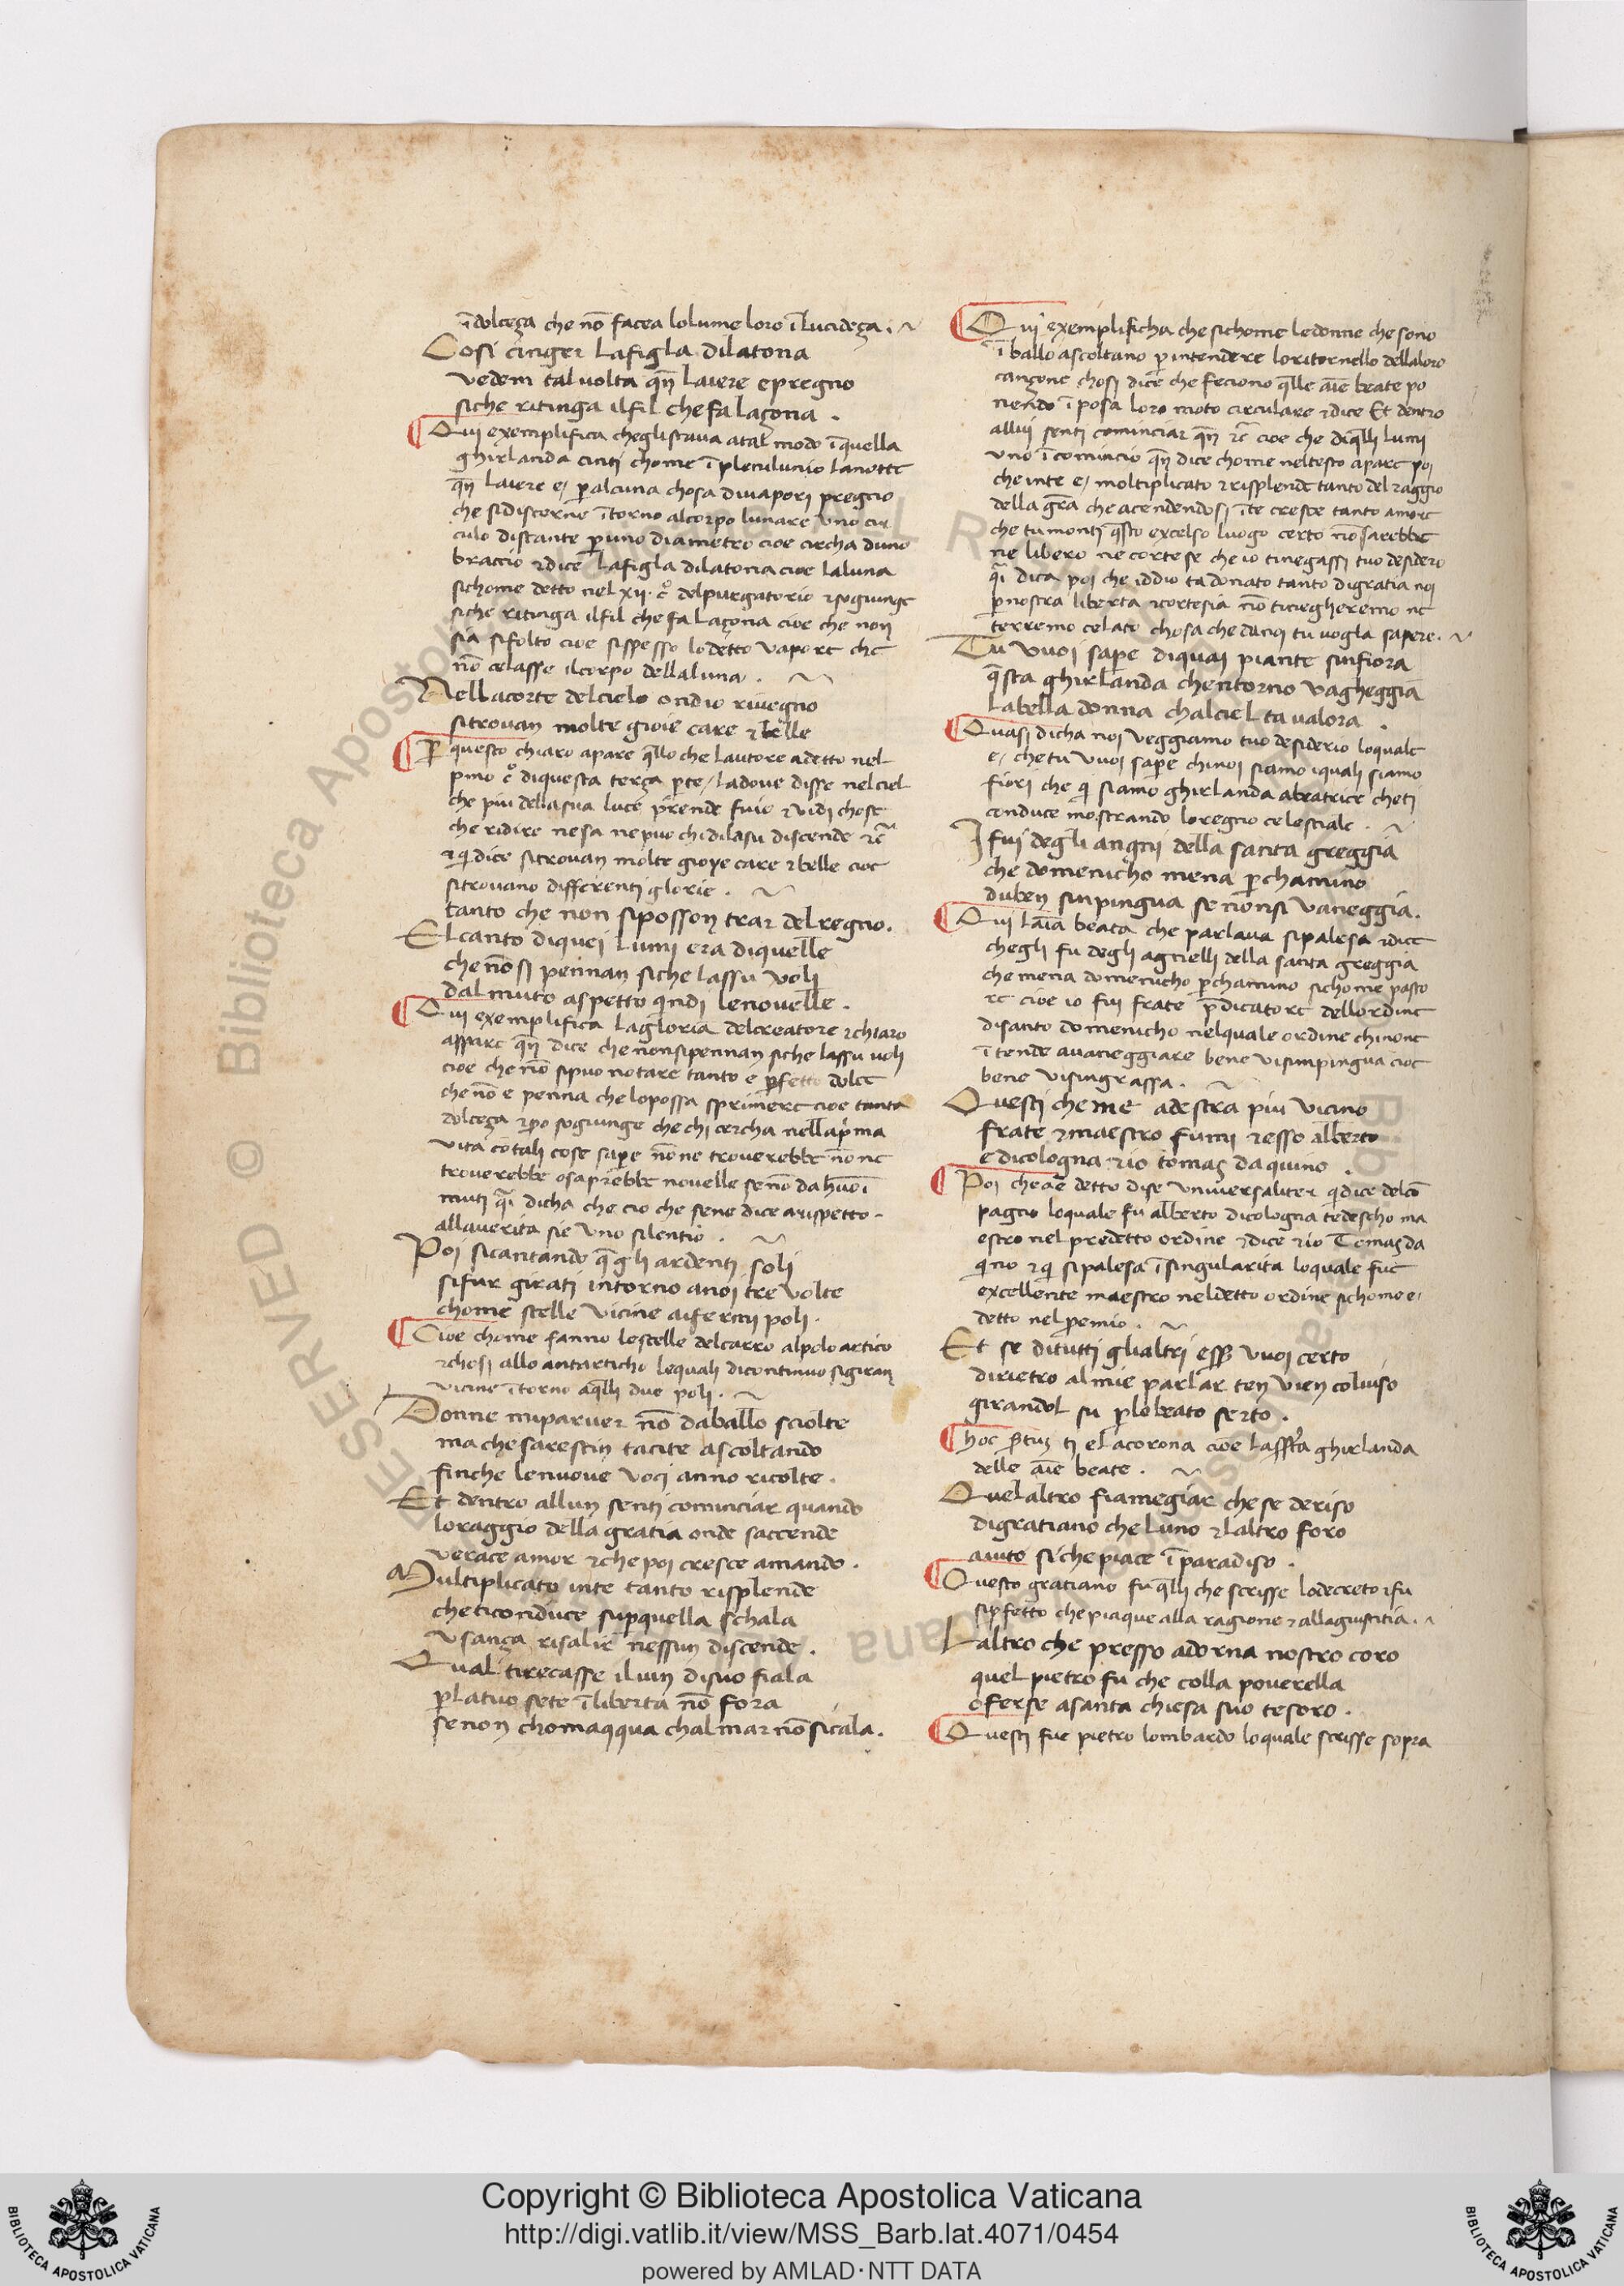 ī dolceça che nō facea lo lume loro ī lucideça .
Cosi cinger la figla di latona
vedem tal volta qn̄ laiere e pregno
siche ritinga il fil che fa la çona .
Qui exemplifica chegli stava a tal modo ī quella
ghirlanda cinti chome ī plenilunio la notte
qn̄ laiere e, p alcuna chosa di vapori pregno
che si discerne ītorno al corpo lunare uno cir
culo distante p uno diametro cioe circha duno
braccio ⁊ dice la figla di latona cioe la luna
sichome detto nel xii. c° del purgatorio ⁊ sogiunge
siche ritinga il fil che fa la çona cioe che non
sia si folto cioe si spesso lo detto vapore che
nō celasse il corpo della luna .
Nella corte del cielo ondio rivegno
si trovan molte gioie care ⁊ belle
Per questo chiaro apare qllo che lautore a detto nel
pmo c° di questa terça pte, la dove disse nel ciel
che piu della sua luce prende fuio ⁊ vidi chose
che ridire ne sa ne puo chi di lasu discende ⁊c̄
⁊ q dice si trovan molte gioye care ⁊ belle cioe
si trovano differenti glorie .
tanto che non si posson trar del regno.
El canto di quei lumi era di quelle
che nō si pennan siche lassu voli
dal muto aspetto qindi le novelle .
Qui exemplifica la gloria del creatore ⁊ chiaro
appare qn̄ dice che non si pennan siche lassu voli
cioe che nō si puo notare tanto e pfetto dolce
che nō e penna che lo possa sprimere cioe tanta
dolceça ⁊ po sogiunge che chi cercha nella prima
vita cō tali cose sape nō ne troverebbe nō ne
troverebbe o saprebbe novelle se nō da huōī
muti qi dicha che cio che sene dice a rispetto
alla verita sie uno silentio .
Poi si cantando qgli ardenti soli
si fur girati intorno a noi tre volte
chome stelle vicine ai fermi poli .
Cioe chome fanno le stelle del carro al polo artico
⁊ chosi allo antarticho le quali di continuo si giran
vicine ītorno a qlli duo poli .
Donne mi parver nō da ballo sciolte
ma che sarestin tacite ascoltando
finche le nuove voci anno ricolte .
Et dentro allun senti cominciar quando
lo raggio della gratia onde saccende
verace amor ⁊ che poi cresce amando .
Multiplicato in te tanto risplende
che ti conduce sup quella schala
v sança risalir nessun discende .
Qual ti recasse il vin di suo fiala
p la tuo sete ī liberta nō fora
se non chom aqqua chal mar nō si cala .
Qui exemplificha che sichome le donne che sono
ī ballo ascoltano p intendere lo ritornello della loro
cançone chosi dice che feciono qlle aīe beate po
nendo ī posa loro moto circulare ⁊ dice Et dentro
allui senti cominciar qn̄ ⁊c̄ cioe che di qlli lumi
uno ī comincio qn̄ dice chome nel testo apare poi
che in te e, moltiplicato ⁊ risplende tanto del raggio
della gr̄a che acendendosi ī te cresce tanto amore
che tu monti qsto excelso luogo certo nō sarebbe
ne libero ne cortese che io ti negassi tuo desidero
qi dica poi che iddio ta donato tanto di gratia noi
p nostra liberta ⁊ cortesia nō ti niegheremo ne
terremo celato chosa che da noi tu vogla sapere .
Tu vuoi sape di quai piante sinfiora
qsta ghirlanda chentorno vagheggia
la bella donna chal ciel ta valora .
Quasi dicha noi veggiamo tuo desiderio lo quale
e, che tu vuoi sape chi noi siamo i quali siamo
fiori che q siamo ghirlanda a beatrice che ti
conduce mostrando lo regno celestiale .
I fui degli angnii della santa greggia
che domenicho mena p chamino
du ben sinpingua se non si vaneggia .
Qui laīa beata che parlava si palesa ⁊ dice
chegli fu degli agnelli della santa greggia
che mena domenicho p chamino sichome pasto
re cioe io fui frate pdicatore dellordine
di santo domenicho nel quale ordine chi none
ītende a vaneggiare bene vi simpingua cioe
bene vi singrassa .
Questi che me a destra piu vicino
frate ⁊ maestro fumi ⁊ esso alberto
e di cologna ⁊ io tomas daquino .
Poi che ae detto di se universaliter q dice del cō
pagno lo quale fu alberto di cologna tedescho ma
estro nel predetto ordine ⁊ dice ⁊ io Tomas da
qino ⁊ q si palesa ī singularita lo quale fue
excellente maestro nel detto ordine sichome e,
detto nel pemio .
Et se di tutti gli altri esse vuoi certo
dirietro al mie parlar ten vien col viso
girandol su p lo beato serto .
Choc ti e la corona cioe la ghirlanda
delle aīe beate .
Quel altro fiamegiar che se deriso
di gratiano che luno ⁊ laltro foro
aiuto si che piace ī paradiso .
Questo gratiano fu qlli che scrisse lo decreto ⁊ fu
si pfetto che piaque alla ragione ⁊ alla giustitia .
Laltro che presso adorna nostro coro
quel pietro fu che colla poverella
oferse a santa chiesa suo tesoro .
Questi fue pietro lombardo lo quale scrisse sopra
Copyright © Biblioteca Apostolica Vaticana
http://digi.vatlib.it/view/MSS_Barb.lat.4071/0454
powered by AMLAD·NTT DATA